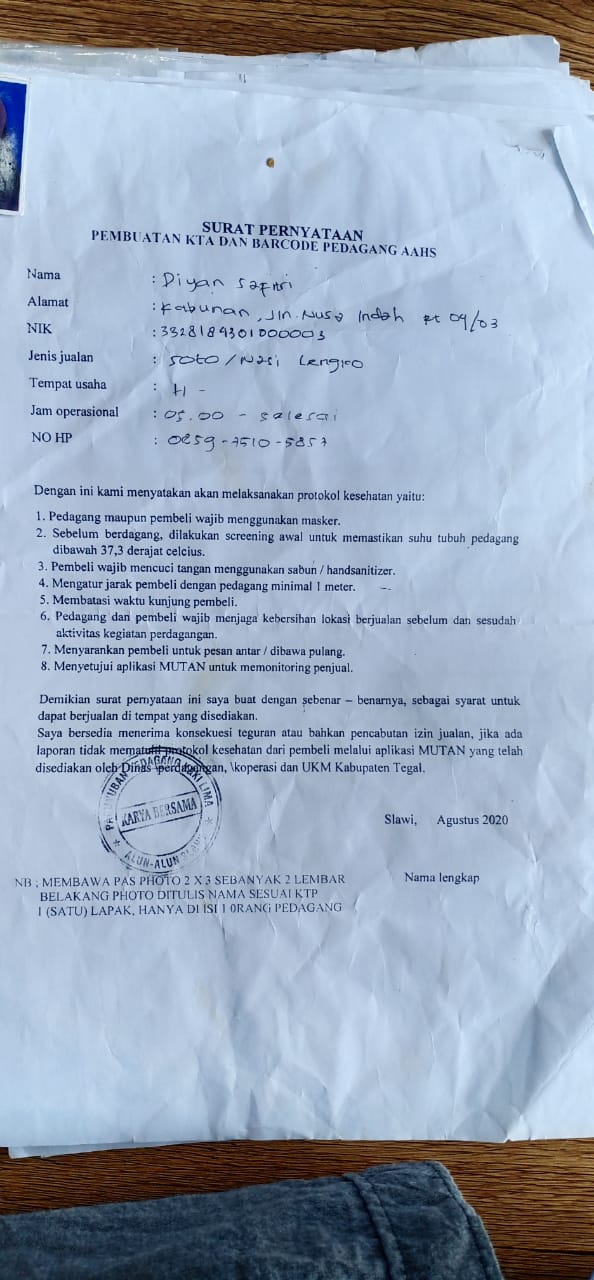 SURAT PERNYATAAN
PEMBUATAN KTA DAN BARCODE PEDAGANG AAHS
Nama : Diyan Safitri
Alamat : Kabunan, Jln. Nusa Indah Rt 09/03
NIK : 3328189301000003
Jenis jualan : Soto / Nasi Lengko
Tempat usaha : H -
Jam operasional : 05.00 - selesai
NO HP : 0859-7510-5857
Dengan ini kami menyatakan akan melaksanakan protokol kesehatan yaitu:
1. Pedagang maupun pembeli wajib menggunakan masker.
2. Sebelum berdagang, dilakukan screening awal untuk memastikan suhu tubuh pedagang
dibawah 37,3 derajat celcius.
3. Pembeli wajib mencuci tangan menggunakan sabun / handsanitizer.
4. Mengatur jarak pembeli dengan pedagang minimal 1 meter.
5. Membatasi waktu kunjung pembeli.
6. Pedagang dan pembeli wajib menjaga kebersihan lokasi berjualan sebelum dan sesudah
aktivitas kegiatan perdagangan.
7. Menyarankan pembeli untuk pesan antar / dibawa pulang.
8. Menyetujui aplikasi MUTAN untuk memonitoring penjual.
Demikian surat pernyataan ini saya buat dengan sebenar – benarnya, sebagai syarat untuk
dapat berjualan di tempat yang disediakan.
Saya bersedia menerima konsekuesi teguran atau bahkan pencabutan izin jualan, jika ada
laporan tidak mematuhi protokol kesehatan dari pembeli melalui aplikasi MUTAN yang telah
disediakan oleh Dinas \perdagangan, \koperasi dan UKM Kabupaten Tegal.
PAGUYUBAN PEDAGANG KAKI LIMA
KARYA BERSAMA
ALUN-ALUN
Slawi, Agustus 2020
Nama lengkap
NB ; MEMBAWA PAS PHOTO 2 X 3 SEBANYAK 2 LEMBAR
BELAKANG PHOTO DITULIS NAMA SESUAI KTP
1 (SATU) LAPAK, HANYA DI ISI 1 0RANG PEDAGANG